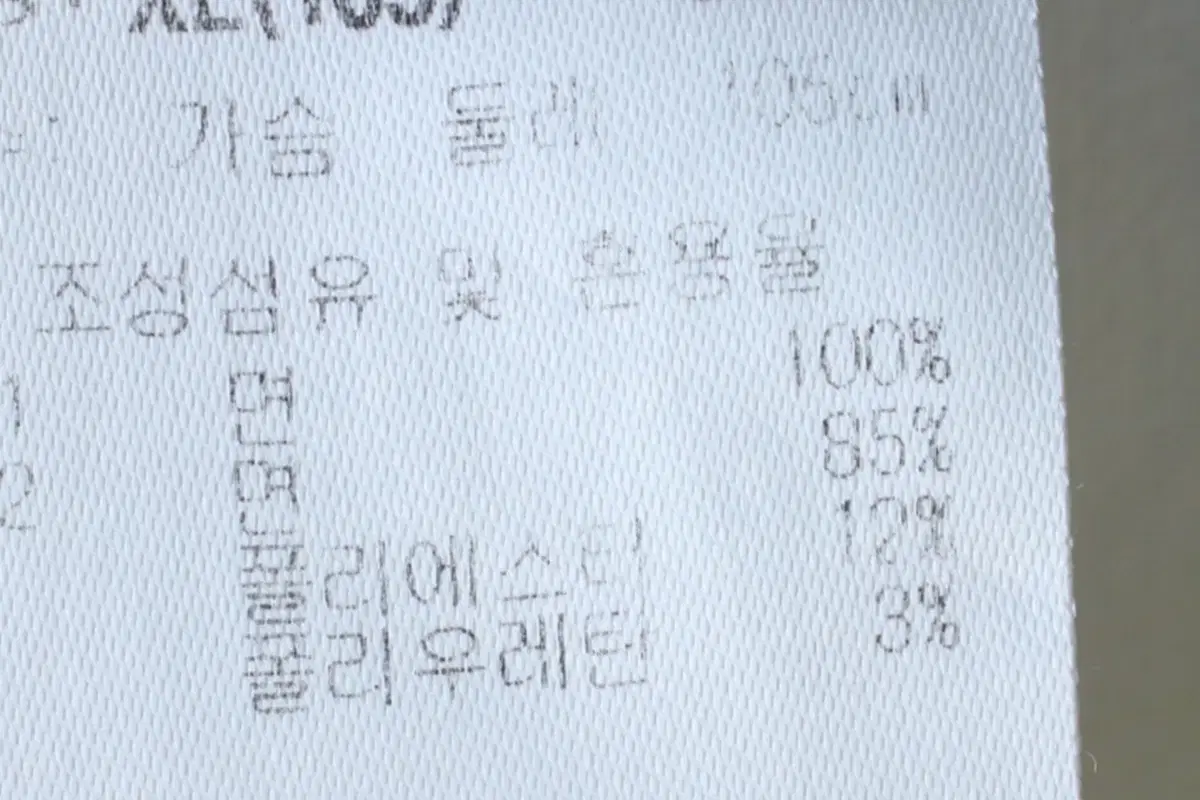 XL(105)
가슴 둘레 105cm
조성섬유 및 혼용율
1 면 100%
2 면 85%
폴리에스터 12%
폴리우레탄 3%